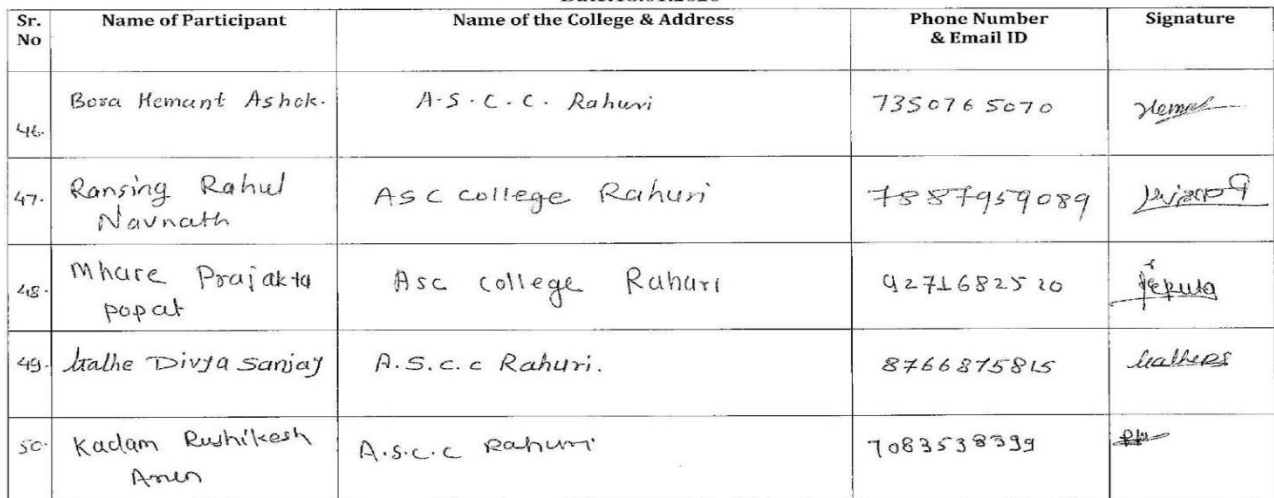 Sr. No Name of Participant Name of the College & Address Phone Number & Email ID Signature
46. Bora Hemant Ashok. A.S.C.C. Rahuri 7350765070
47. Ransing Rahul Navnath ASC college Rahuri 7887959089
48. Mhare Prajakta popat Asc college Rahuri 9271682520
49. Divya Sanjay A.S.C.C Rahuri. 8766875815
50. Kadam Rushikesh A.S.C.C Rahuri 7083538399